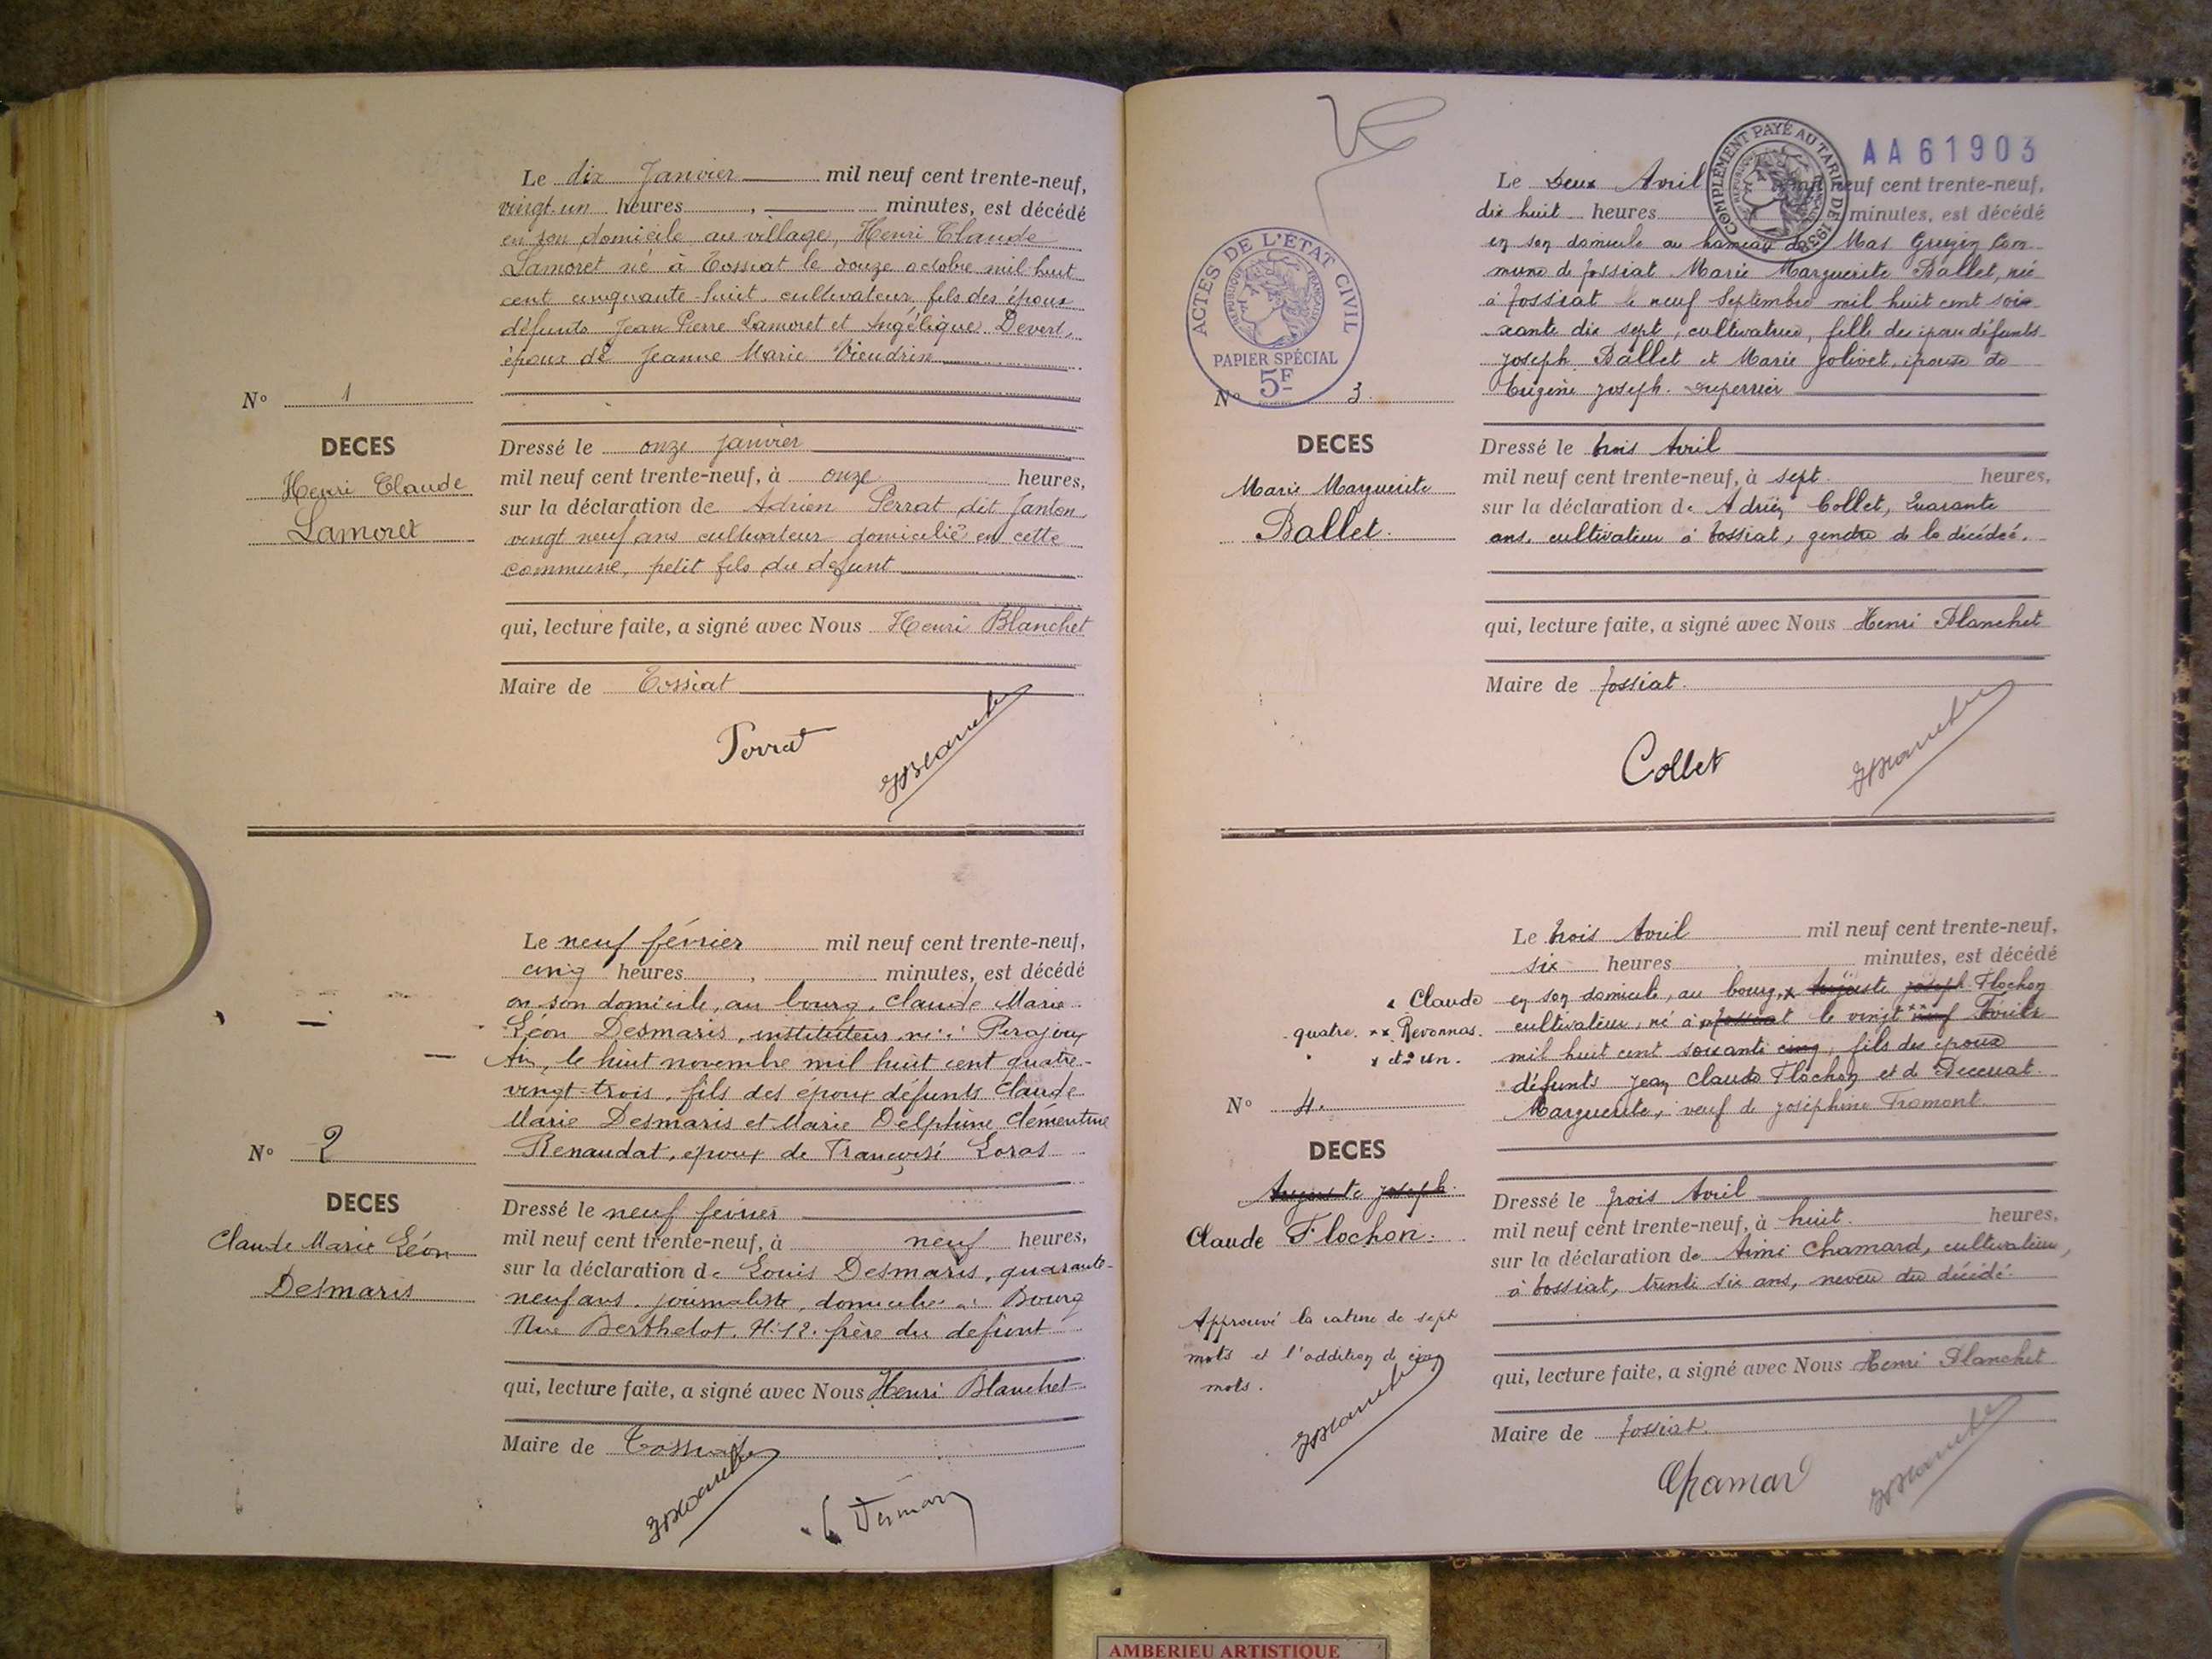 Le dix Janvier mil neuf cent trente-neuf,
vingt-un heures , minutes, est décédé
en son domicile au village, Henri Claude
Lamoret né à Tossiat le douze octobre mil huit
cent cinquante-huit, cultivateur, fils des époux
défunts Jean Pierre Lamoret et Angélique Devert,
époux de Jeanne Marie Vieudrin
N° 1
DECES
Henri Claude
Lamoret
Dressé le onze janvier
mil neuf cent trente-neuf, à onze heures,
sur la déclaration de Adrien Perrat dit Janton
vingt neuf ans cultivateur domicilié en cette
commune, petit fils du defunt
qui, lecture faite, a signé avec Nous Henri Blanchet
Maire de Tossiat
Perrat
HBlanchet
Le neuf février mil neuf cent trente-neuf,
cinq heures , minutes, est décédé
en son domicile, au bourg, Claude Marie
Léon Desmaris, instituteur, né à
Ain, le huit novembre mil huit cent quatre-
vingt-trois, fils des époux défunts Claude
Marie Desmaris et Marie Delphine Clémentine
Renaudat, époux de Françoise Loras
N° 2
DECES
Claude Marie Léon
Desmaris
Dressé le neuf février
mil neuf cent trente-neuf, à neuf heures,
sur la déclaration de Louis Desmaris, quarante-
neuf ans, journaliste, domicilié à Bourg
Rue Berthelot, N: 12. frère du defunt
qui, lecture faite, a signé avec Nous Henri Blanchet
Maire de Tossiat
HBlanchet
L Desmaris
COMPLÉMENT PAYÉ AU TARIF DE 1938
RÉPUBLIQUE FRANÇAISE
AA61903
Le Deux Avril mil neuf cent trente-neuf,
dix huit heures minutes, est décédé
en son domicile au hameau de Mas Gruzin Com
mune de Tossiat Marie Marguerite Ballet, né
à Tossiat le neuf Septembre mil huit cent soix
xante dix sept, cultivatrice, fille des époux défunts
Joseph Ballet et Marie Jolivet, épouse de
Eugène Joseph Duperrier
ACTES DE L'ÉTAT CIVIL
RÉPUBLIQUE FRANÇAISE
PAPIER SPÉCIAL
5F
N° 3
DECES
Marie Marguerite
Ballet.
Dressé le trois Avril
mil neuf cent trente-neuf, à sept heures,
sur la déclaration de Adrien Collet, Quarante
ans, cultivateur à Tossiat, gendre de la décédée.
qui, lecture faite, a signé avec Nous Henri Blanchet
Maire de Tossiat.
Collet
HBlanchet
Le trois Avril mil neuf cent trente-neuf,
six heures , minutes, est décédé
x Claude en son domicile, au bourg, x Auguste Joseph Flochon
quatre. xx Revonnas. cultivateur, né à Tossiat le vingt neuf Février
x et un. mil huit cent soixante cinq, fils des époux
défunts Jean Claude Flochon et de
Marguerite, veuf de Joséphine Fromont.
N° 4.
DECES
Auguste Joseph
Claude Flochon.
Approuvé la rature de sept
mots et l'addition de cinq
mots.
HBlanchet
Dressé le trois Avril
mil neuf cent trente-neuf, à huit. heures,
sur la déclaration de Aimé Chamard, cultivateur,
à Tossiat, trente six ans, neveu du décédé.
qui, lecture faite, a signé avec Nous Henri Blanchet
Maire de Tossiat.
Chamard
HBlanchet
AMBERIEU ARTISTIQUE